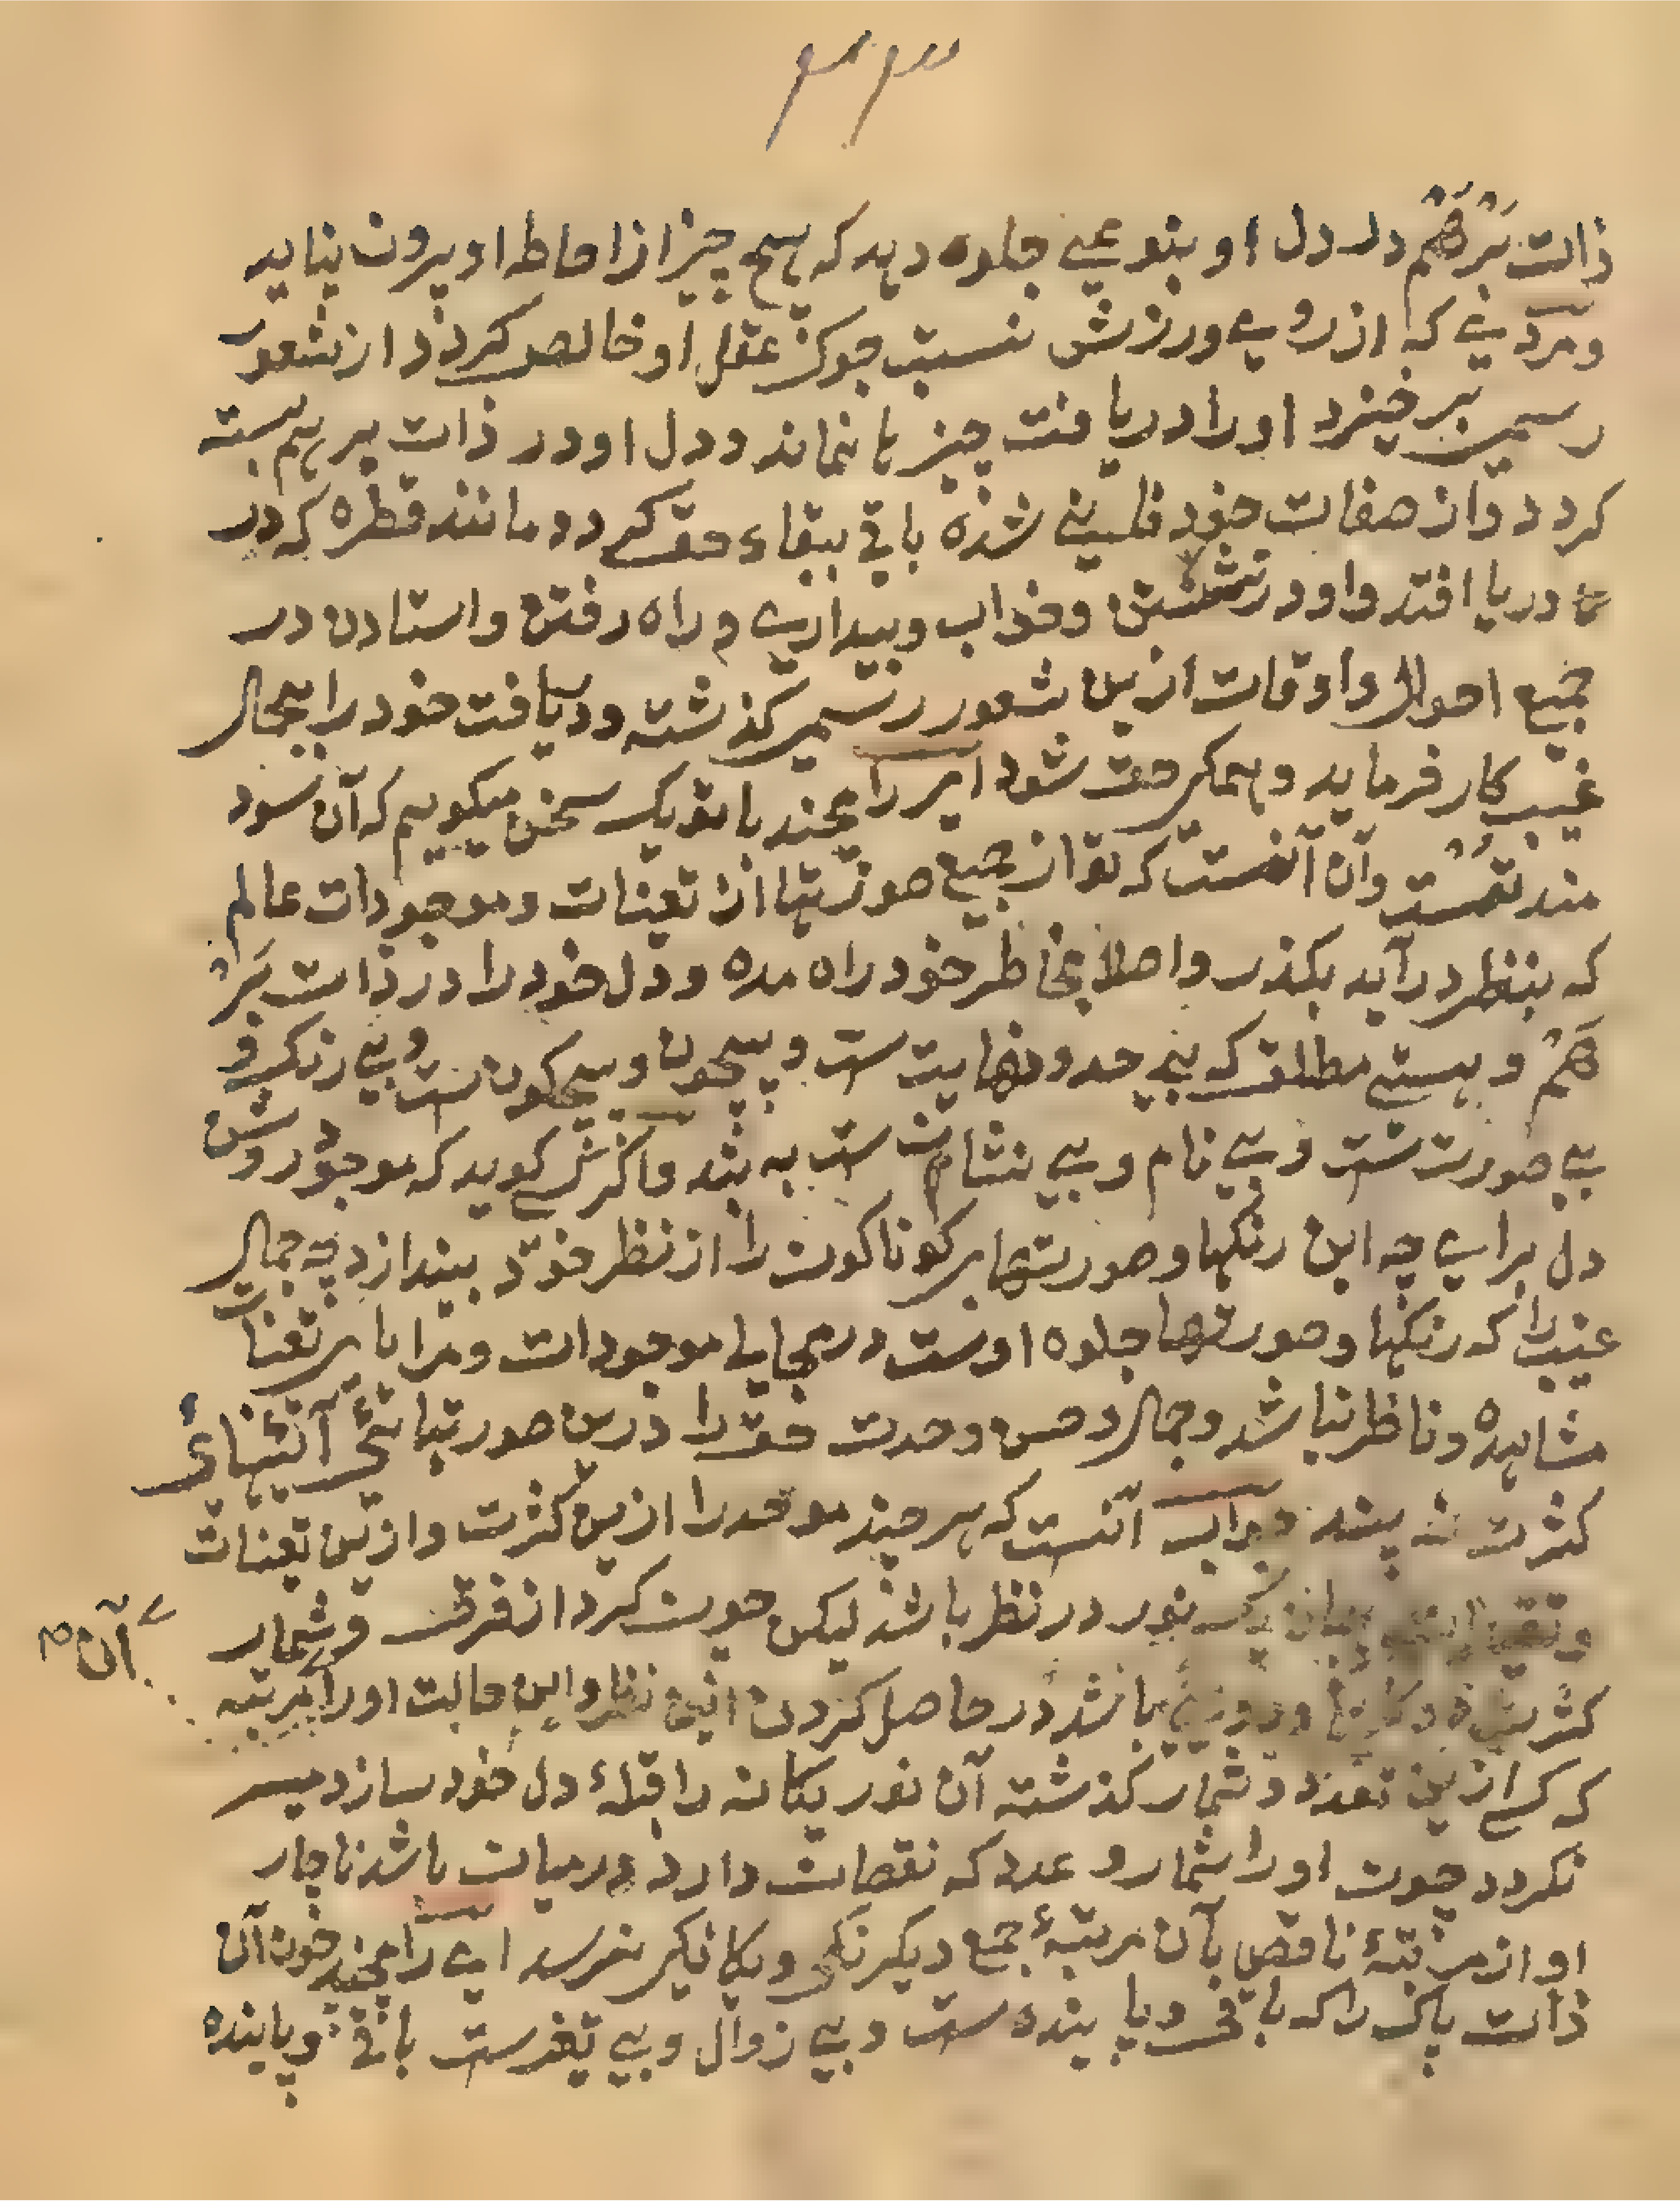 ۳۳
ذات بَرْهَمْ در دل او بنوعی جلوه دهد که هیچ چیز از احاطه او بیرون نیاید
و مردنی که از روی ورزش نسبت جوک عقل او خالص کردد از شعور
رسمی برخیزد او را دریافت چیزها نماند و دل او در ذات برهم بسته
کردد و از صفات خود فانی شده باقی ببقاء حق کردد و مانند قطره که در
دریا افتد و او در نشستن و خواب و بیداری و راه رفتن و استادن در
جمیع احوال و اوقات ازین شعور رسمی کذشته و دریافت خود را بجمال
غیب کار فرماید و همکی حق شود ای رامچند با تو یک سخن میکویم که آن سود
مند تست و آن آنست که تو از جمیع صورتها از تعینات و موجودات عالم
که بنظر درآید بکذر و اصلا بخاطر خود راه مده و دل خود را در ذات بَرْ
هَمْ و هستی مطلق که بی حد و نهایت ست و بیچون و بیچکون ست و بی رنک و
بی صورت ست و بی نام و بی نشان ست به بند و اکر کسی کوید که موحد روشن
دل برای چه این رنکها و صورتهای کوناکون را از نظر خود بیندازد چه جمال
غیب را که رنکها و صورتها جلوه اوست در مجالی موجودات و مرایای تعینات
مشاهده و ناظر نباشد و جمال و حسن وحدت حق را درین صورتهای آئینهای
کثرت نه بیند جواب آنست که هر چند موحد را ازین کثرت و ازین تعینات
نور در نظر باشد لیکن چون کرد از فرق و شمار
کثرت باشد در حاصل کردن این نظر و این حالت او را مرتبه
آن
که کسی ازین تعدد و شمار کذشته آن نور یکانه را قبلهٔ دل خود سازد میسر
نکردد چون او را شمار و عدد که نقصان دارد در میان باشد ناچار
او از مرتبهٔ ناقص بآن مرتبهٔ جمع و یکانکی نرسد ای رامچند چون آن
ذات پاک را که باقی و پاینده ست و بی زوال و بی تغیرست باقی و پاینده